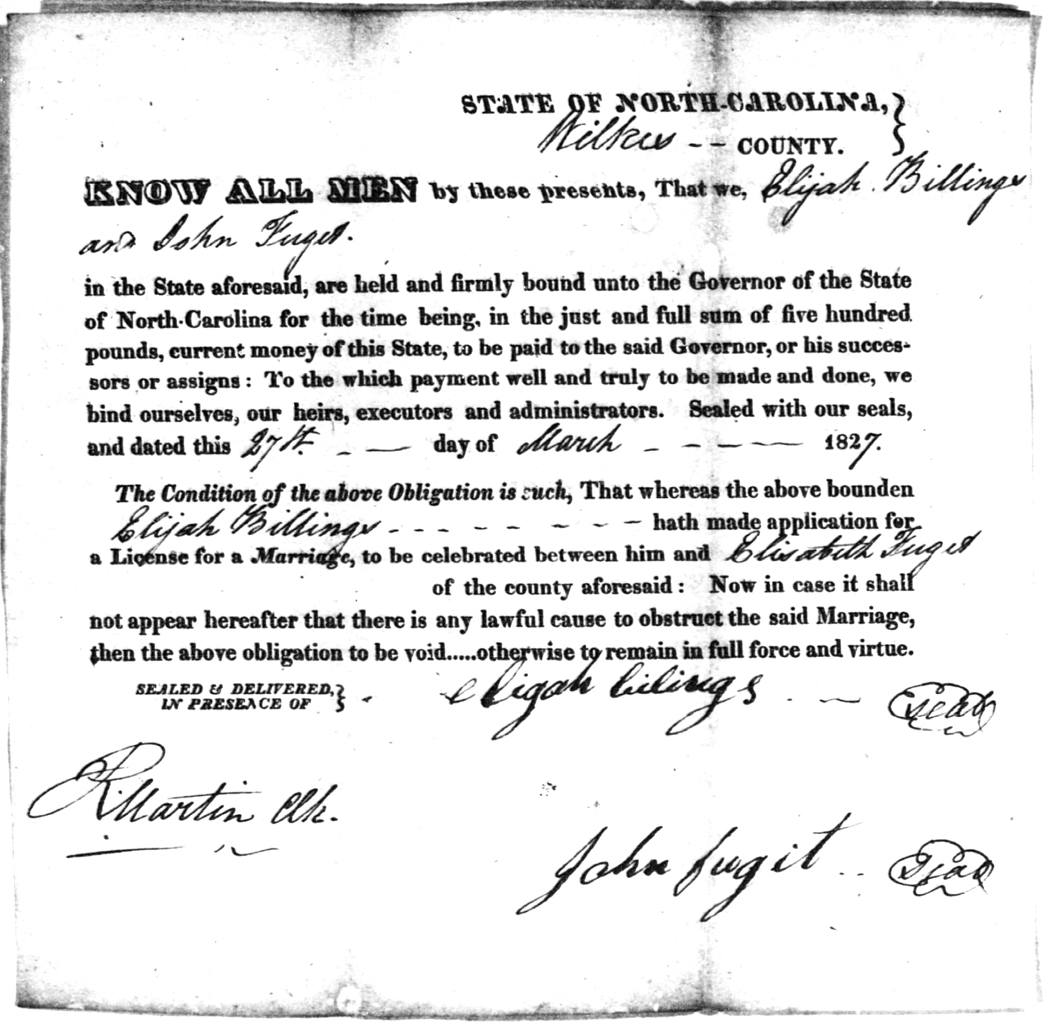 STATE OF NORTH-CAROLINA,
Wilkes - - COUNTY.
KNOW ALL MEN by these presents, That we, Elijah Billings
and John Fuget.
in the State aforesaid, are held and firmly bound unto the Governor of the State
of North-Carolina for the time being, in the just and full sum of five hundred
pounds, current money of this State, to be paid to the said Governor, or his succes-
sors or assigns: To the which payment well and truly to be made and done, we
bind ourselves, our heirs, executors and administrators. Sealed with our seals,
and dated this 27th. - — day of March - - - — 1827.
The Condition of the above Obligation is such, That whereas the above bounden
Elijah Billings - - - - - - - — hath made application for
a License for a Marriage, to be celebrated between him and Elisabeth Fuget
of the county aforesaid: Now in case it shall
not appear hereafter that there is any lawful cause to obstruct the said Marriage,
then the above obligation to be void.....otherwise to remain in full force and virtue.
SEALED & DELIVERED,
IN PRESENCE OF
eligah bilings - — Seal
R. Martin Clk.
John fugit .. Seal